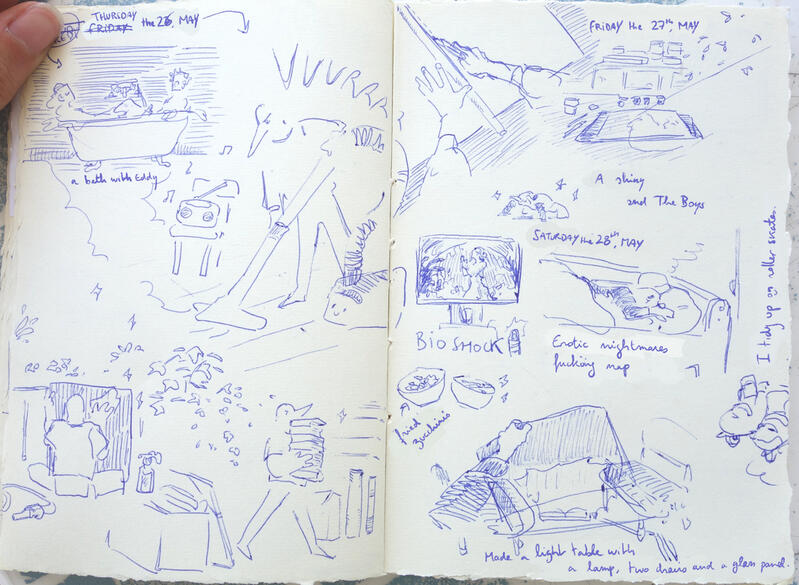 THURSDAY
FRIDAY the 26, MAY
VVVRRR
a bath with Eddy
FRIDAY the 27th, MAY
A shiny
and The Boys
SATURDAY the 28th, MAY
BIOSHOCK
Erotic nightmares
fucking nap
fried
zucchinis
I tidy up on roller skates.
Made a light table with
a lamp, two chairs and a glass panel.